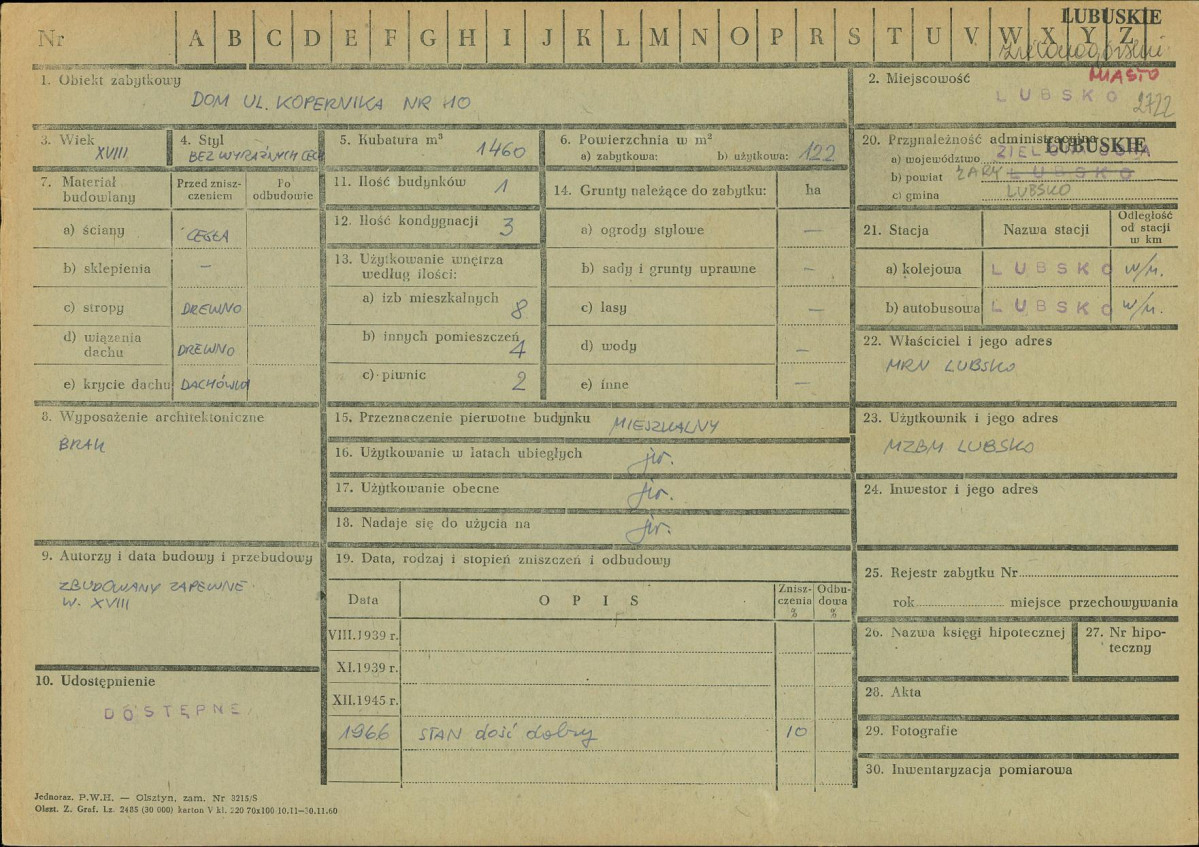 Nr A B C D E F G H I J K L M N O P R S T U V W X Y Z
LUBUSKIE
zielonogórskie
MIASTO
1. Obiekt zabytkowy
DOM UL. KOPERNIKA NR 10
2. Miejscowość
LUBSKO 2722
3. Wiek
XVIII
4. Styl
BEZ WYRAŹNYCH CECH
5. Kubatura m³ 1460
6. Powierzchnia w m²
a) zabytkowa: b) użytkowa: 122
7. Materiał budowlany
Przed zniszczeniem
Po odbudowie
a) ściany CEGŁA
b) sklepienia —
c) stropy DREWNO
d) wiązania dachu DREWNO
e) krycie dachu DACHÓWKA
8. Wyposażenie architektoniczne
BRAK
9. Autorzy i data budowy i przebudowy
ZBUDOWANY ZAPEWNE
W. XVIII
10. Udostępnienie
DOSTĘPNE
11. Ilość budynków 1
12. Ilość kondygnacji 3
13. Użytkowanie wnętrza
według ilości:
a) izb mieszkalnych 8
b) innych pomieszczeń 4
c) piwnic 2
14. Grunty należące do zabytku: ha
a) ogrody stylowe —
b) sady i grunty uprawne —
c) lasy —
d) wody —
e) inne —
15. Przeznaczenie pierwotne budynku MIESZKALNY
16. Użytkowanie w latach ubiegłych jw.
17. Użytkowanie obecne jw.
18. Nadaje się do użycia na jw.
19. Data, rodzaj i stopień zniszczeń i odbudowy
Data OPIS Zniszczenia % Odbudowa %
VIII.1939 r.
XI.1939 r.
XII.1945 r.
1966 STAN dość dobry 10
20. Przynależność administracyjna
LUBUSKIE
a) województwo ZIELONA GÓRA
b) powiat ŻARY LUBSKO
c) gmina LUBSKO
21. Stacja Nazwa stacji Odległość od stacji w km
a) kolejowa LUBSKO w/m.
b) autobusowa LUBSKO w/m.
22. Właściciel i jego adres
MRN LUBSKO
23. Użytkownik i jego adres
MZBM LUBSKO
24. Inwestor i jego adres
25. Rejestr zabytku Nr
rok miejsce przechowywania
26. Nazwa księgi hipotecznej
27. Nr hipoteczny
28. Akta
29. Fotografie
30. Inwentaryzacja pomiarowa
Jednoraz. P.W.H. — Olsztyn, zam. Nr 3215/S
Olszt. Z. Graf. Lz. 2485 (30 000) karton V kl. 220 70x100 10.11—30.11.60